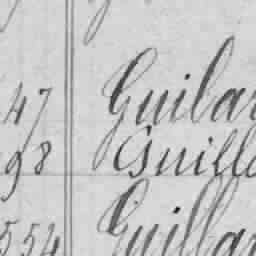 47 Guilar
98 Guillo
554 Guillar